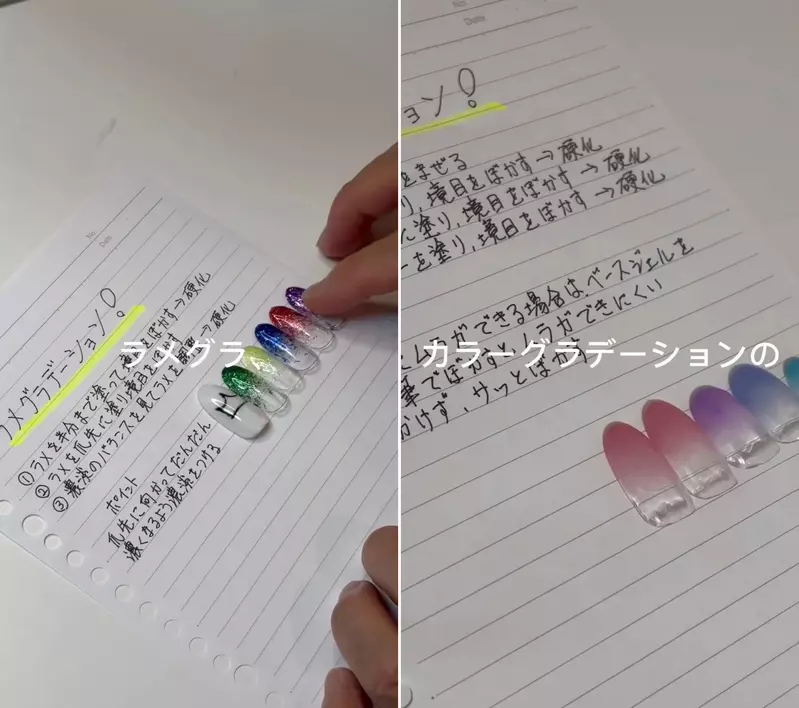 No.
Date
ラメグラデーション!
①ラメを半分まで塗って境目をぼかす→硬化
②ラメを爪先に塗り境目をぼかす→硬化
③濃淡のバランスを見てラメを
ポイント
爪先に向かってだんだん
濃くなるよう濃淡をつける
ラメグラ
No.
Date
ョン!
をまぜる
り、境目をぼかす→硬化
に塗り、境目をぼかす→硬化
ーを塗り、境目をぼかす→硬化
ムラができる場合はベースジェルを
筆でぼかすと、ムラができにくい
かけず、サッとぼかす
カラーグラデーションの